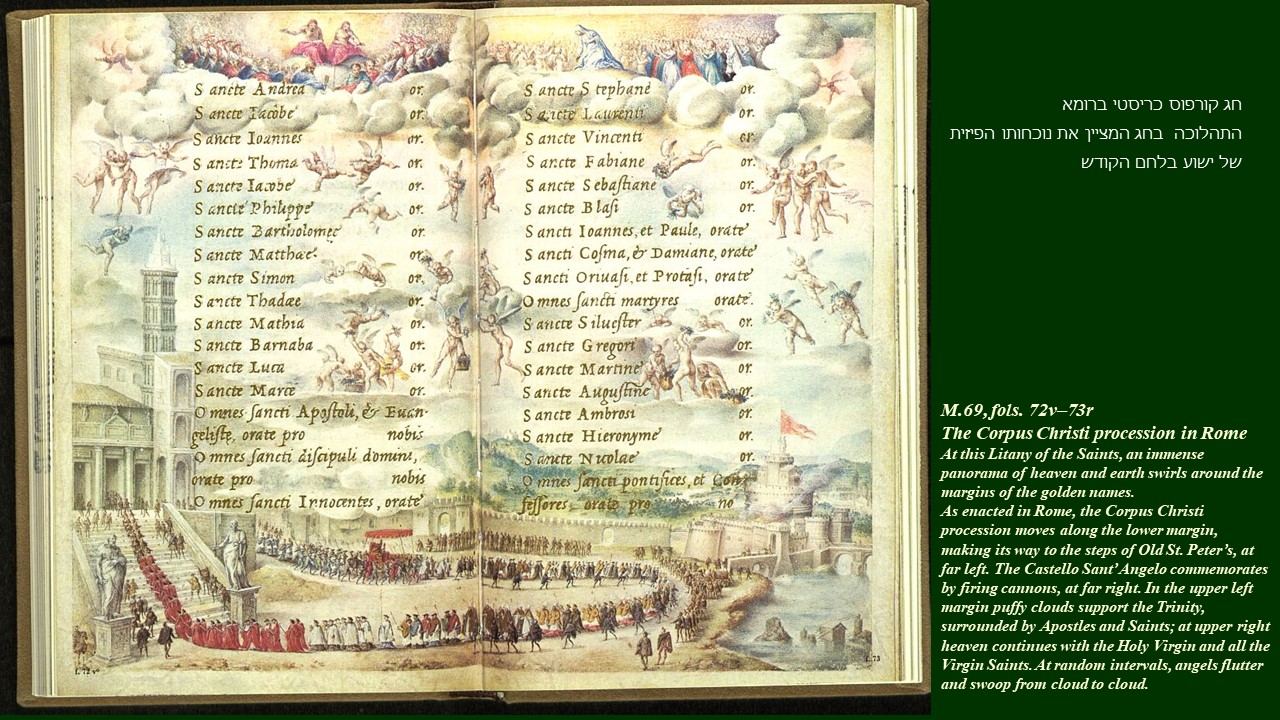 Sancte Andrea or.
Sancte Iacobe or.
Sancte Ioannes or.
Sancte Thoma or.
Sancte Iacobe or.
Sancte Philippe or.
Sancte Bartholomęe or.
Sancte Matthae or.
Sancte Simon or.
Sancte Thadæe or.
Sancte Mathia or.
Sancte Barnaba or.
Sancte Luca or.
Sancte Marce or.
Omnes sancti Apostoli, & Euan-
gelistę, orate pro nobis
Omnes sancti discipuli domini,
orate pro nobis
Omnes sancti Innocentes, orate
f. 72 v
Sancte Stephane or.
Sancte Laurenti or.
Sancte Vincenti or.
Sancte Fabiane or.
Sancte Sebastiane or.
Sancte Blasi or.
Sancti Ioannes, et Paule, orate
Sancti Cosma, & Damiane, orate
Sancti Oriuasi, et Protasi, orate
Omnes sancti martyres orate.
Sancte Siluester or.
Sancte Gregori or.
Sancte Martine or.
Sancte Augustine or.
Sancte Ambrosi or.
Sancte Hieronyme or.
Sancte Nicolae or.
Omnes sancti pontifices, et Con-
fessores orate pro no
f. 73
חג קורפוס כריסטי ברומא
התהלוכה בחג המציין את נוכחותו הפיזית
של ישוע בלחם הקודש
M.69, fols. 72v–73r
The Corpus Christi procession in Rome
At this Litany of the Saints, an immense
panorama of heaven and earth swirls around the
margins of the golden names.
As enacted in Rome, the Corpus Christi
procession moves along the lower margin,
making its way to the steps of Old St. Peter’s, at
far left. The Castello Sant’Angelo commemorates
by firing cannons, at far right. In the upper left
margin puffy clouds support the Trinity,
surrounded by Apostles and Saints; at upper right
heaven continues with the Holy Virgin and all the
Virgin Saints. At random intervals, angels flutter
and swoop from cloud to cloud.